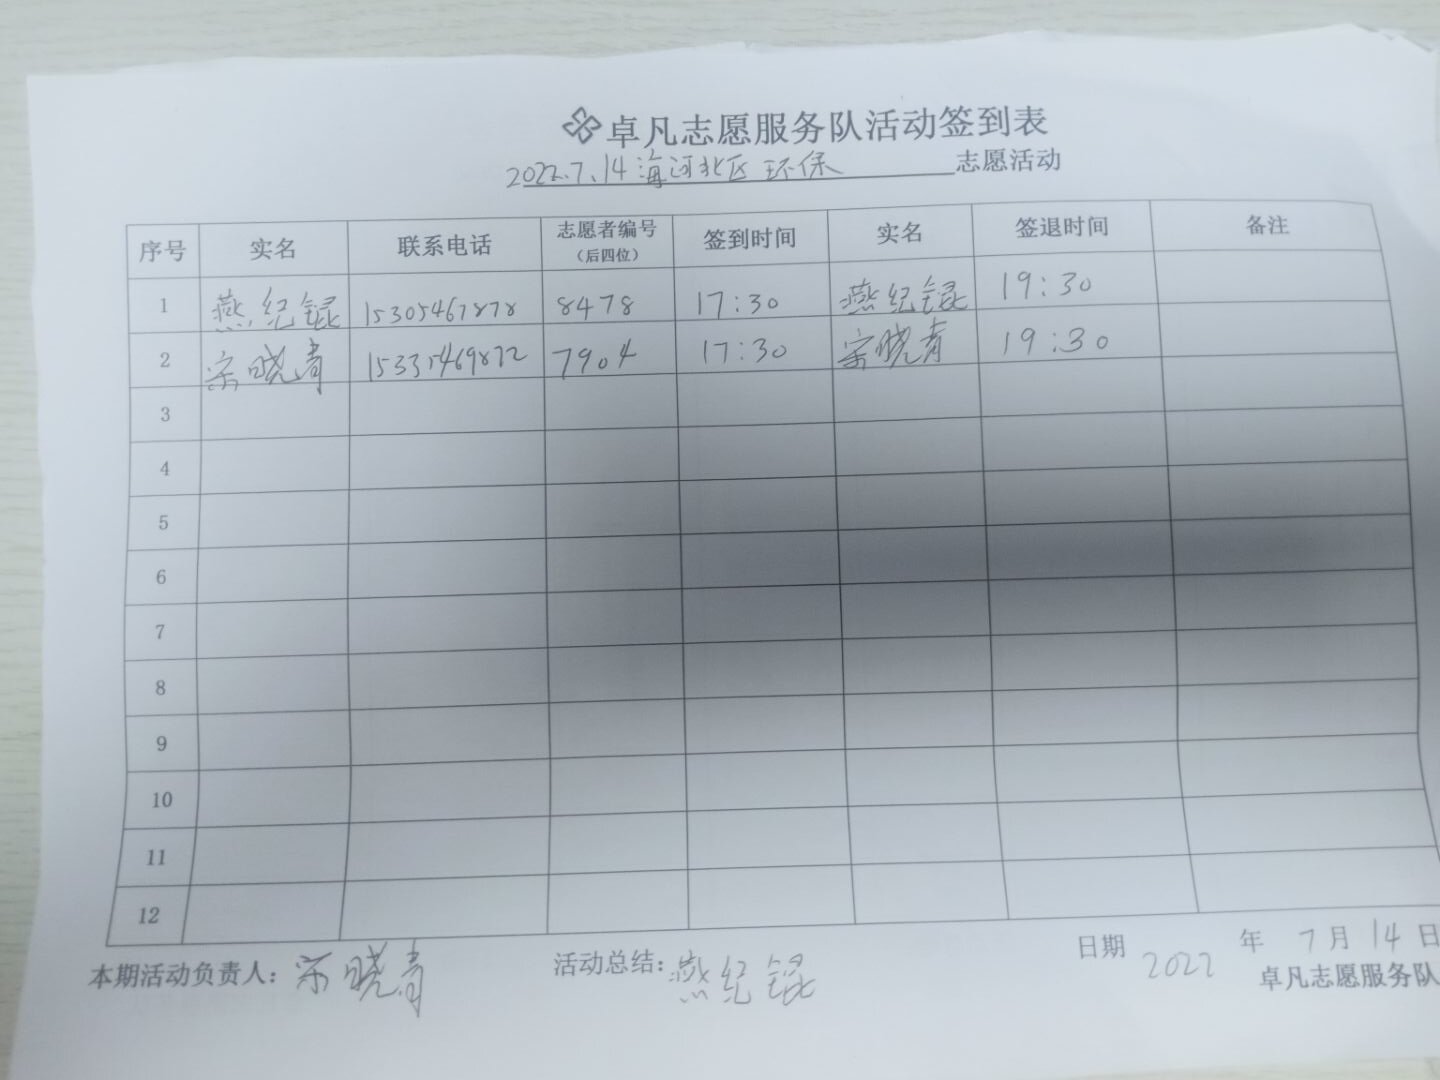 卓凡志愿服务队活动签到表
2022.7.14海河北区 环保 志愿活动
序号 实名 联系电话 志愿者编号（后四位） 签到时间 实名 签退时间 备注
1 燕纪锟 15305467878 8478 17:30 燕纪锟 19:30
2 宋晓青 15335469872 7904 17:30 宋晓青 19:30
3
4
5
6
7
8
9
10
11
12
本期活动负责人：宋晓青 活动总结：燕纪锟 日期 2022 年 7 月 14 日
卓凡志愿服务队